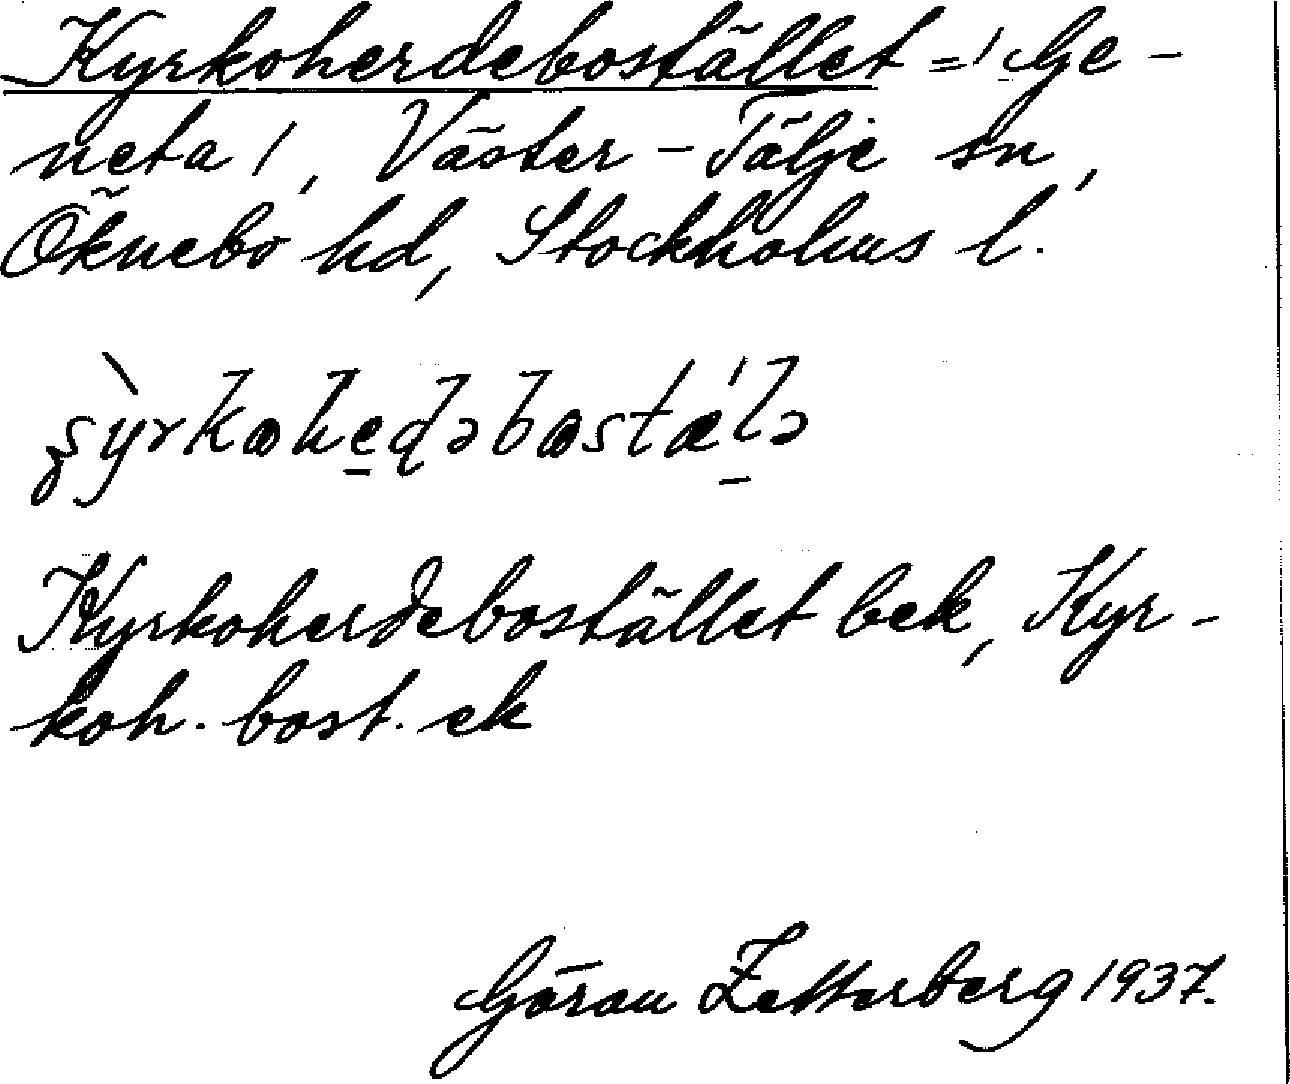 Kyrkoherdebostället =/ Ge-
neta /, Väster-Tälje sn,
Öknebo hd, Stockholms l.
Kyrkoherdebostället bek, Kyr-
koh. bost. ek
Göran Zetterberg 1937.